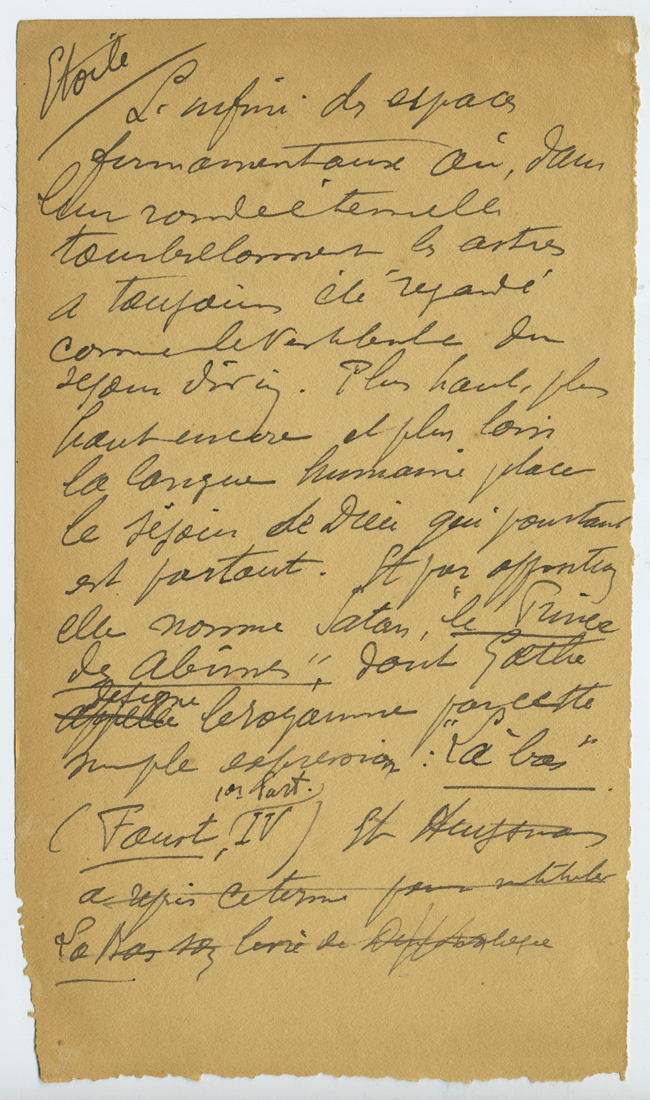 Etoile
L'infini des espaces
firmamentaux où, dans
leur ronde éternelle
tourbillonnent les astres
a toujours été regardé
comme le vestibule du
séjour divin. Plus haut, plus
haut encore et plus loin
la langue humaine place
le séjour de Dieu qui pourtant
est partout. Et par opposition
elle nomme Satan, "le Prince
des Abîmes", dont Gœthe
désigne
appelle le royaume par cette
simple expression : "Là bas"
1er Part.
(Faust, IV) Et Huysmans
a repris ce terme pour intituler
Là Bas son livre de